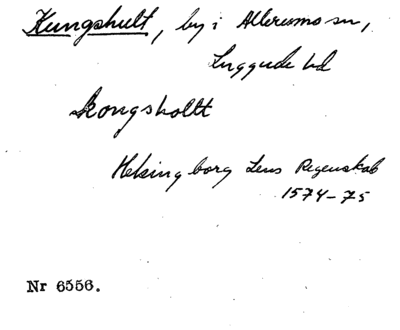 Kungshult, by i Allerums sn,
Luggude hd
kongsholtt
Helsingborg Lens Regenskab
1574-75
Nr 6556.